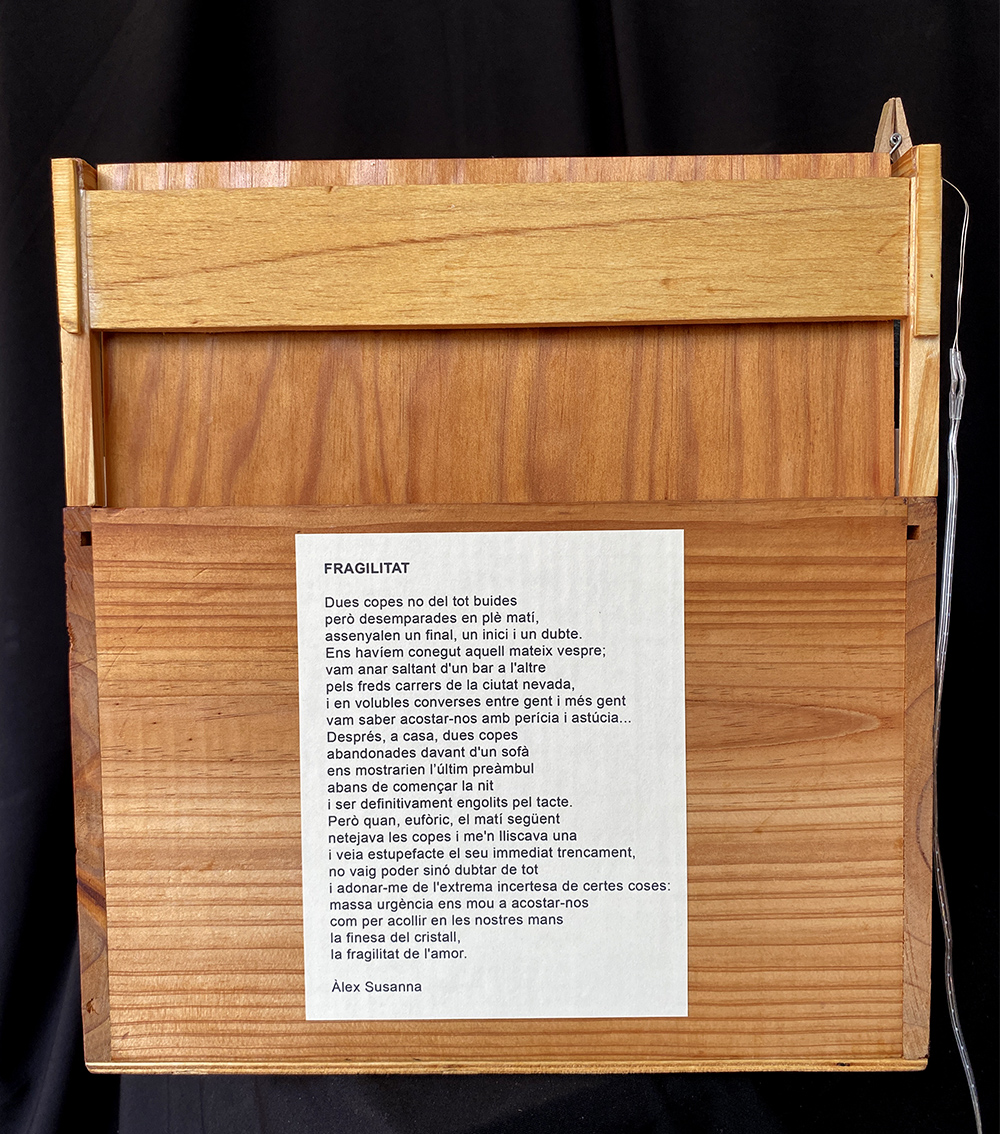 FRAGILITAT
Dues copes no del tot buides
però desemparades en plè matí,
assenyalen un final, un inici i un dubte.
Ens havíem conegut aquell mateix vespre;
vam anar saltant d'un bar a l'altre
pels freds carrers de la ciutat nevada,
i en volubles converses entre gent i més gent
vam saber acostar-nos amb perícia i astúcia...
Després, a casa, dues copes
abandonades davant d'un sofà
ens mostrarien l'últim preàmbul
abans de començar la nit
i ser definitivament engolits pel tacte.
Però quan, eufòric, el matí següent
netejava les copes i me'n lliscava una
i veia estupefacte el seu immediat trencament,
no vaig poder sinó dubtar de tot
i adonar-me de l'extrema incertesa de certes coses:
massa urgència ens mou a acostar-nos
com per acollir en les nostres mans
la finesa del cristall,
la fragilitat de l'amor.
Àlex Susanna